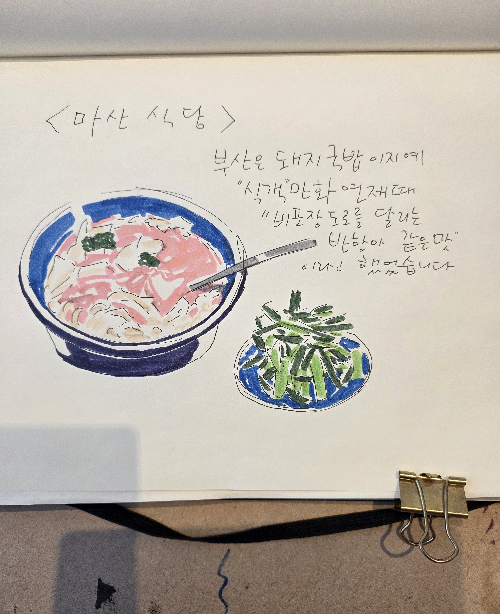 <마산 식당>
부산은 돼지국밥이지예
"식객"만화 연재때
"비포장도로를 달리는
반항아 같은맛"
이라고 했었습니다